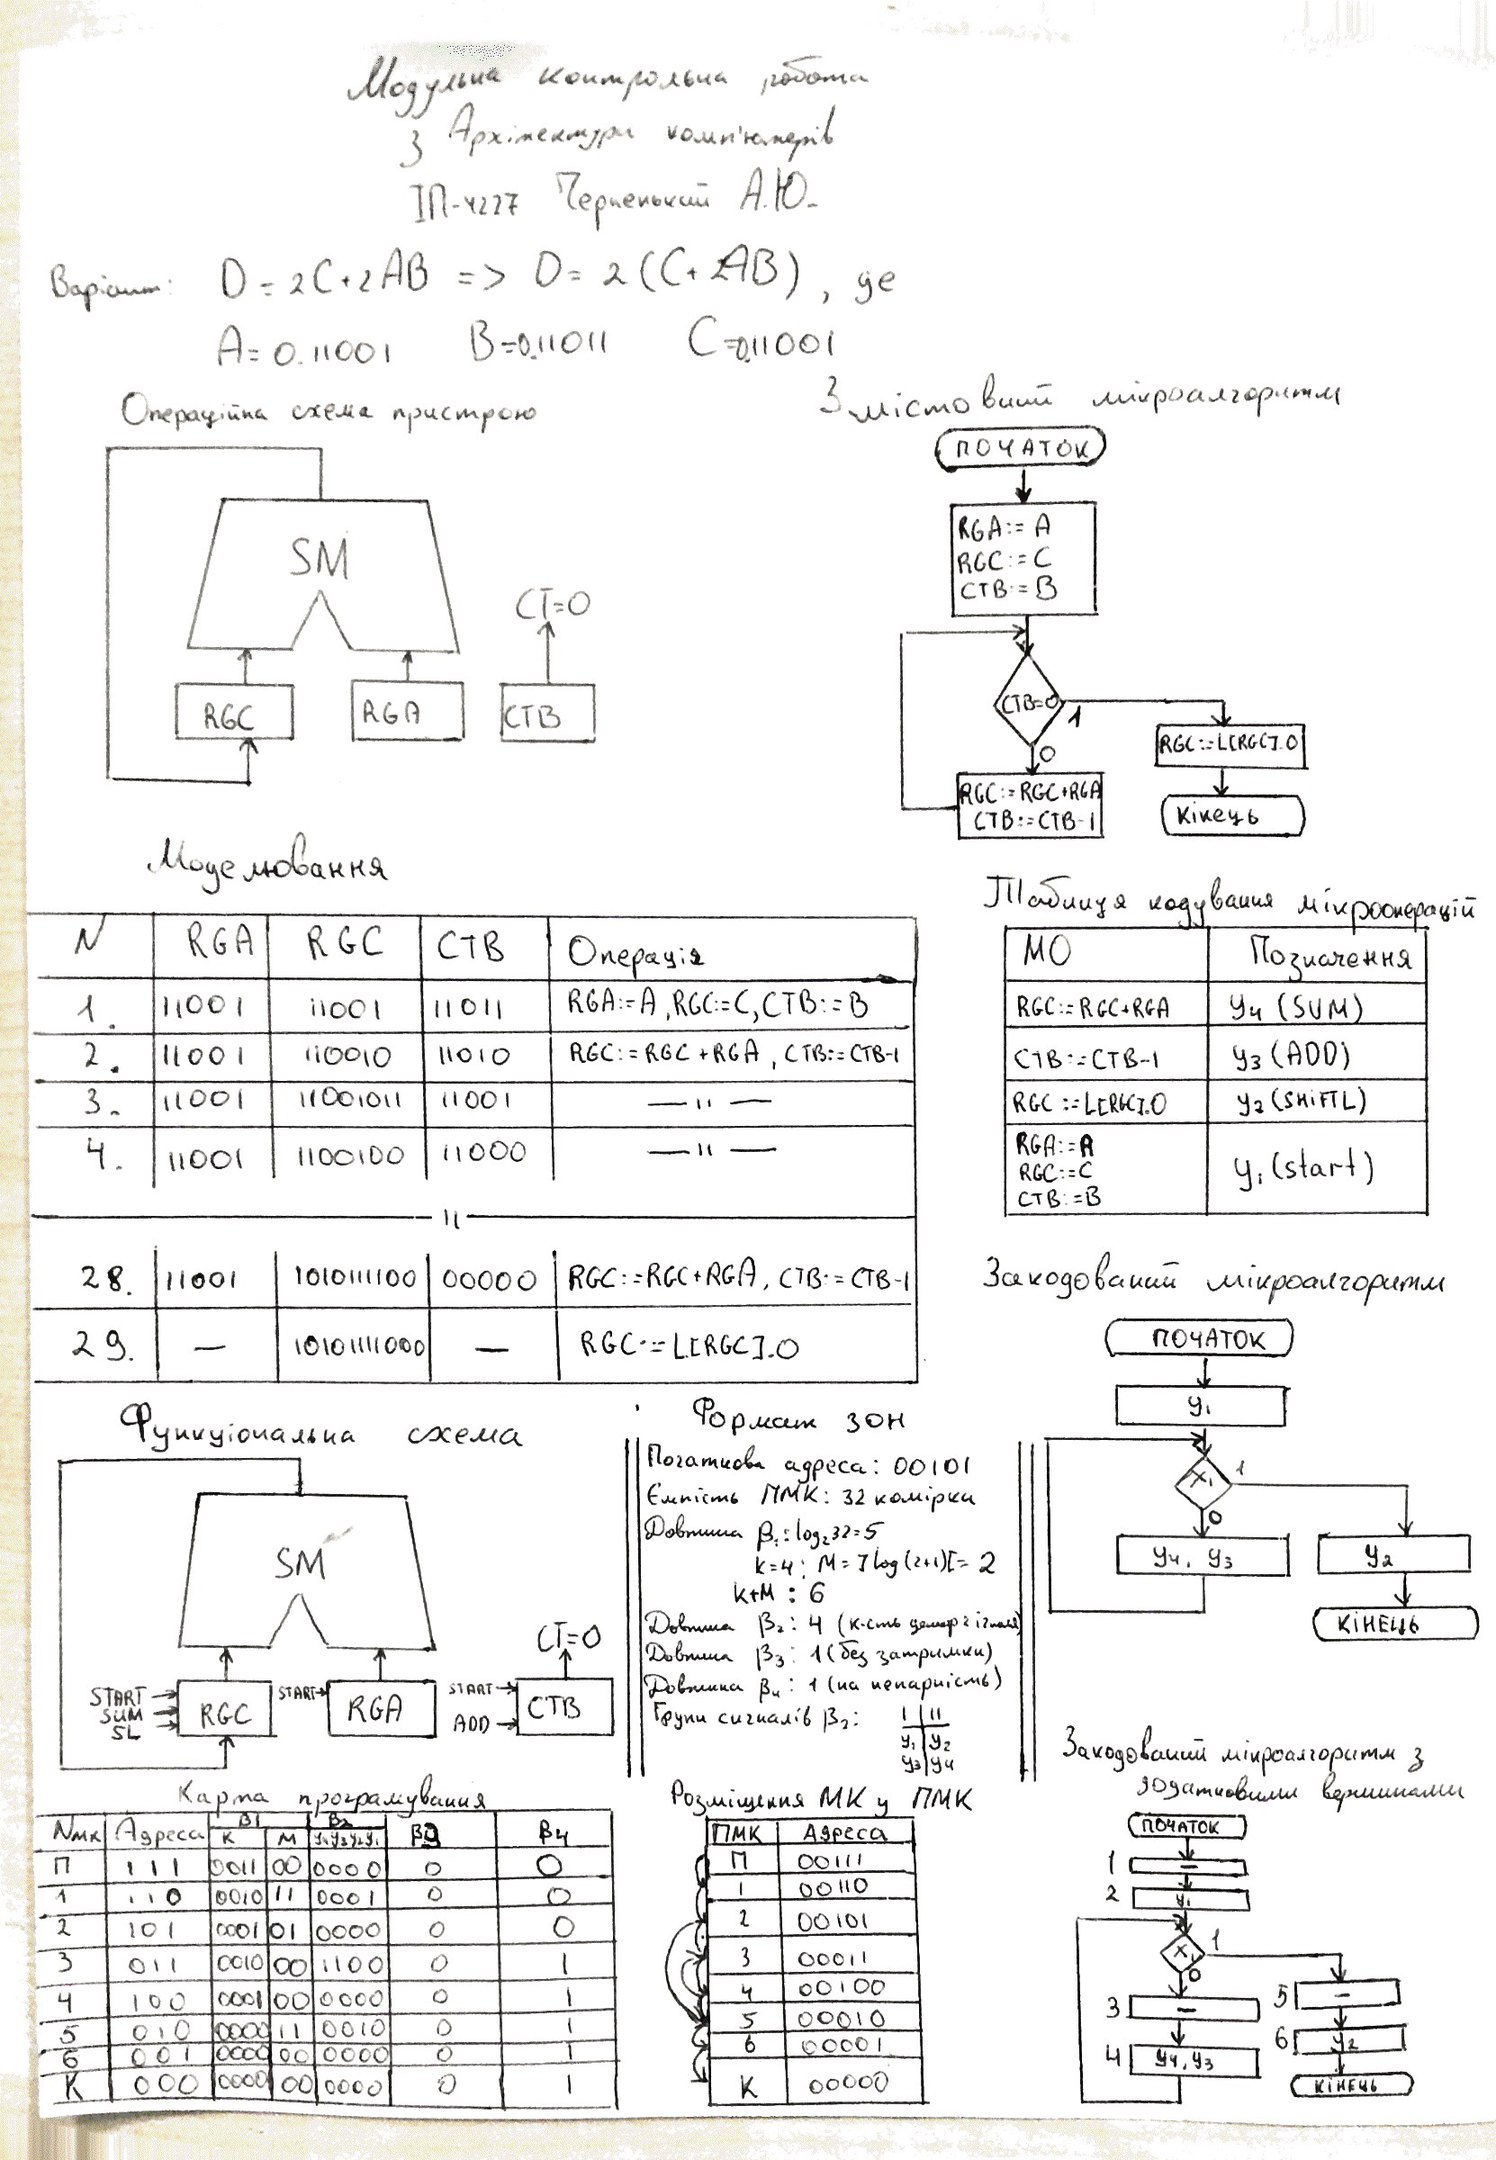 Модульна контрольна робота
з Архітектури комп'ютерів
ІП-4227 Черненький А.Ю.
Варіант: D = 2C+2AB => D = 2(C+2AB), де
A=0.11001 B=0.11011 C=0.11001
Операційна схема пристрою
SM
CT=0
RGC RGA CTB
Змістовий мікроалгоритм
ПОЧАТОК
RGA:=A
RGC:=C
CTB:=B
CTB=0
1
0
RGC:=L[RGC].0
RGC:=RGC+RGA
CTB:=CTB-1
Кінець
Моделювання
N RGA RGC CTB Операція
1. 11001 11001 11011 RGA:=A, RGC:=C, CTB:=B
2. 11001 110010 11010 RGC:=RGC+RGA, CTB:=CTB-1
3. 11001 11001011 11001 — " —
4. 11001 1100100 11000 — " —
— " —
28. 11001 1010111100 00000 RGC:=RGC+RGA, CTB:=CTB-1
29. — 10101111000 — RGC:=L[RGC].0
Таблиця кодування мікрооперацій
МО Позначення
RGC:=RGC+RGA y4 (SUM)
CTB:=CTB-1 y3 (ADD)
RGC:=L[RGC].0 y2 (SHiFTL)
RGA:=A
RGC:=C
CTB:=B
y1 (start)
Закодований мікроалгоритм
ПОЧАТОК
y1
X1
1
0
y4, y3
y2
КІНЕЦЬ
Функціональна схема
SM
CT=0
START
SUM
SL
RGC
START
RGA
START
ADD
CTB
Формат зон
Початкова адреса: 00101
Ємність ПМК: 32 комірки
Довжина β1: log₂32=5
K=4; M=]log(2+1)[=2
K+M : 6
Довжина β2: 4 (к-сть
Довжина β3: 1 (без затримки)
Довжина β4: 1 (на непарність)
Групи сигналів β2: I II
y1 y2
y3 y4
Закодований мікроалгоритм з
додатковими вершинами
ПОЧАТОК
1 —
2 y1
X1
1
0
3 —
4 y4, y3
5 —
6 y2
КІНЕЦЬ
Карта програмування
Nмк Адреса β1 β2 β3 β4
K M y4y3y2y1
П 111 0011 00 0000 0 0
1 110 0010 11 0001 0 0
2 101 0001 01 0000 0 0
3 011 0010 00 1100 0 1
4 100 0001 00 0000 0 1
5 010 0000 11 0010 0 1
6 001 0000 00 0000 0 1
K 000 0000 00 0000 0 1
Розміщення МК у ПМК
ПМК Адреса
П 00111
1 00110
2 00101
3 00011
4 00100
5 00010
6 00001
K 00000